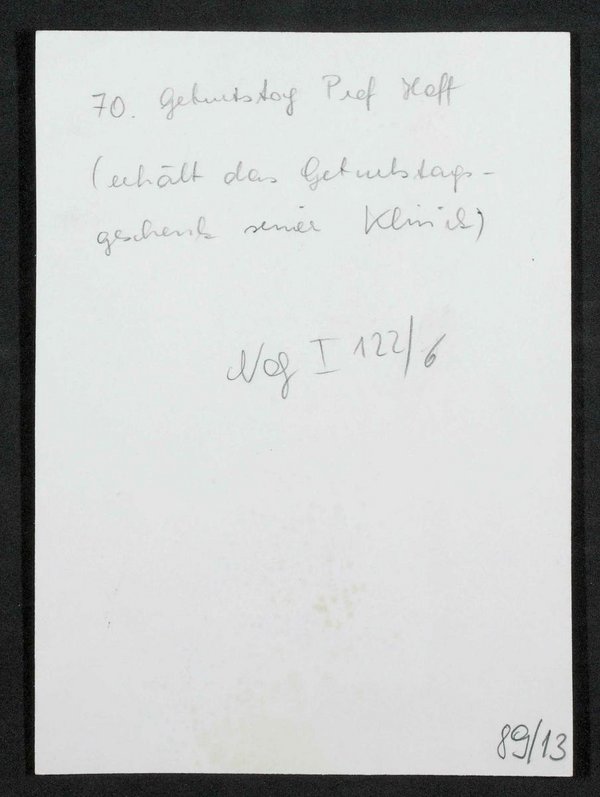 70. Geburtstag Prof Hoff
(erhält das Geburtstags-
geschenk seiner Klinik)
Neg I 122/6
89/13